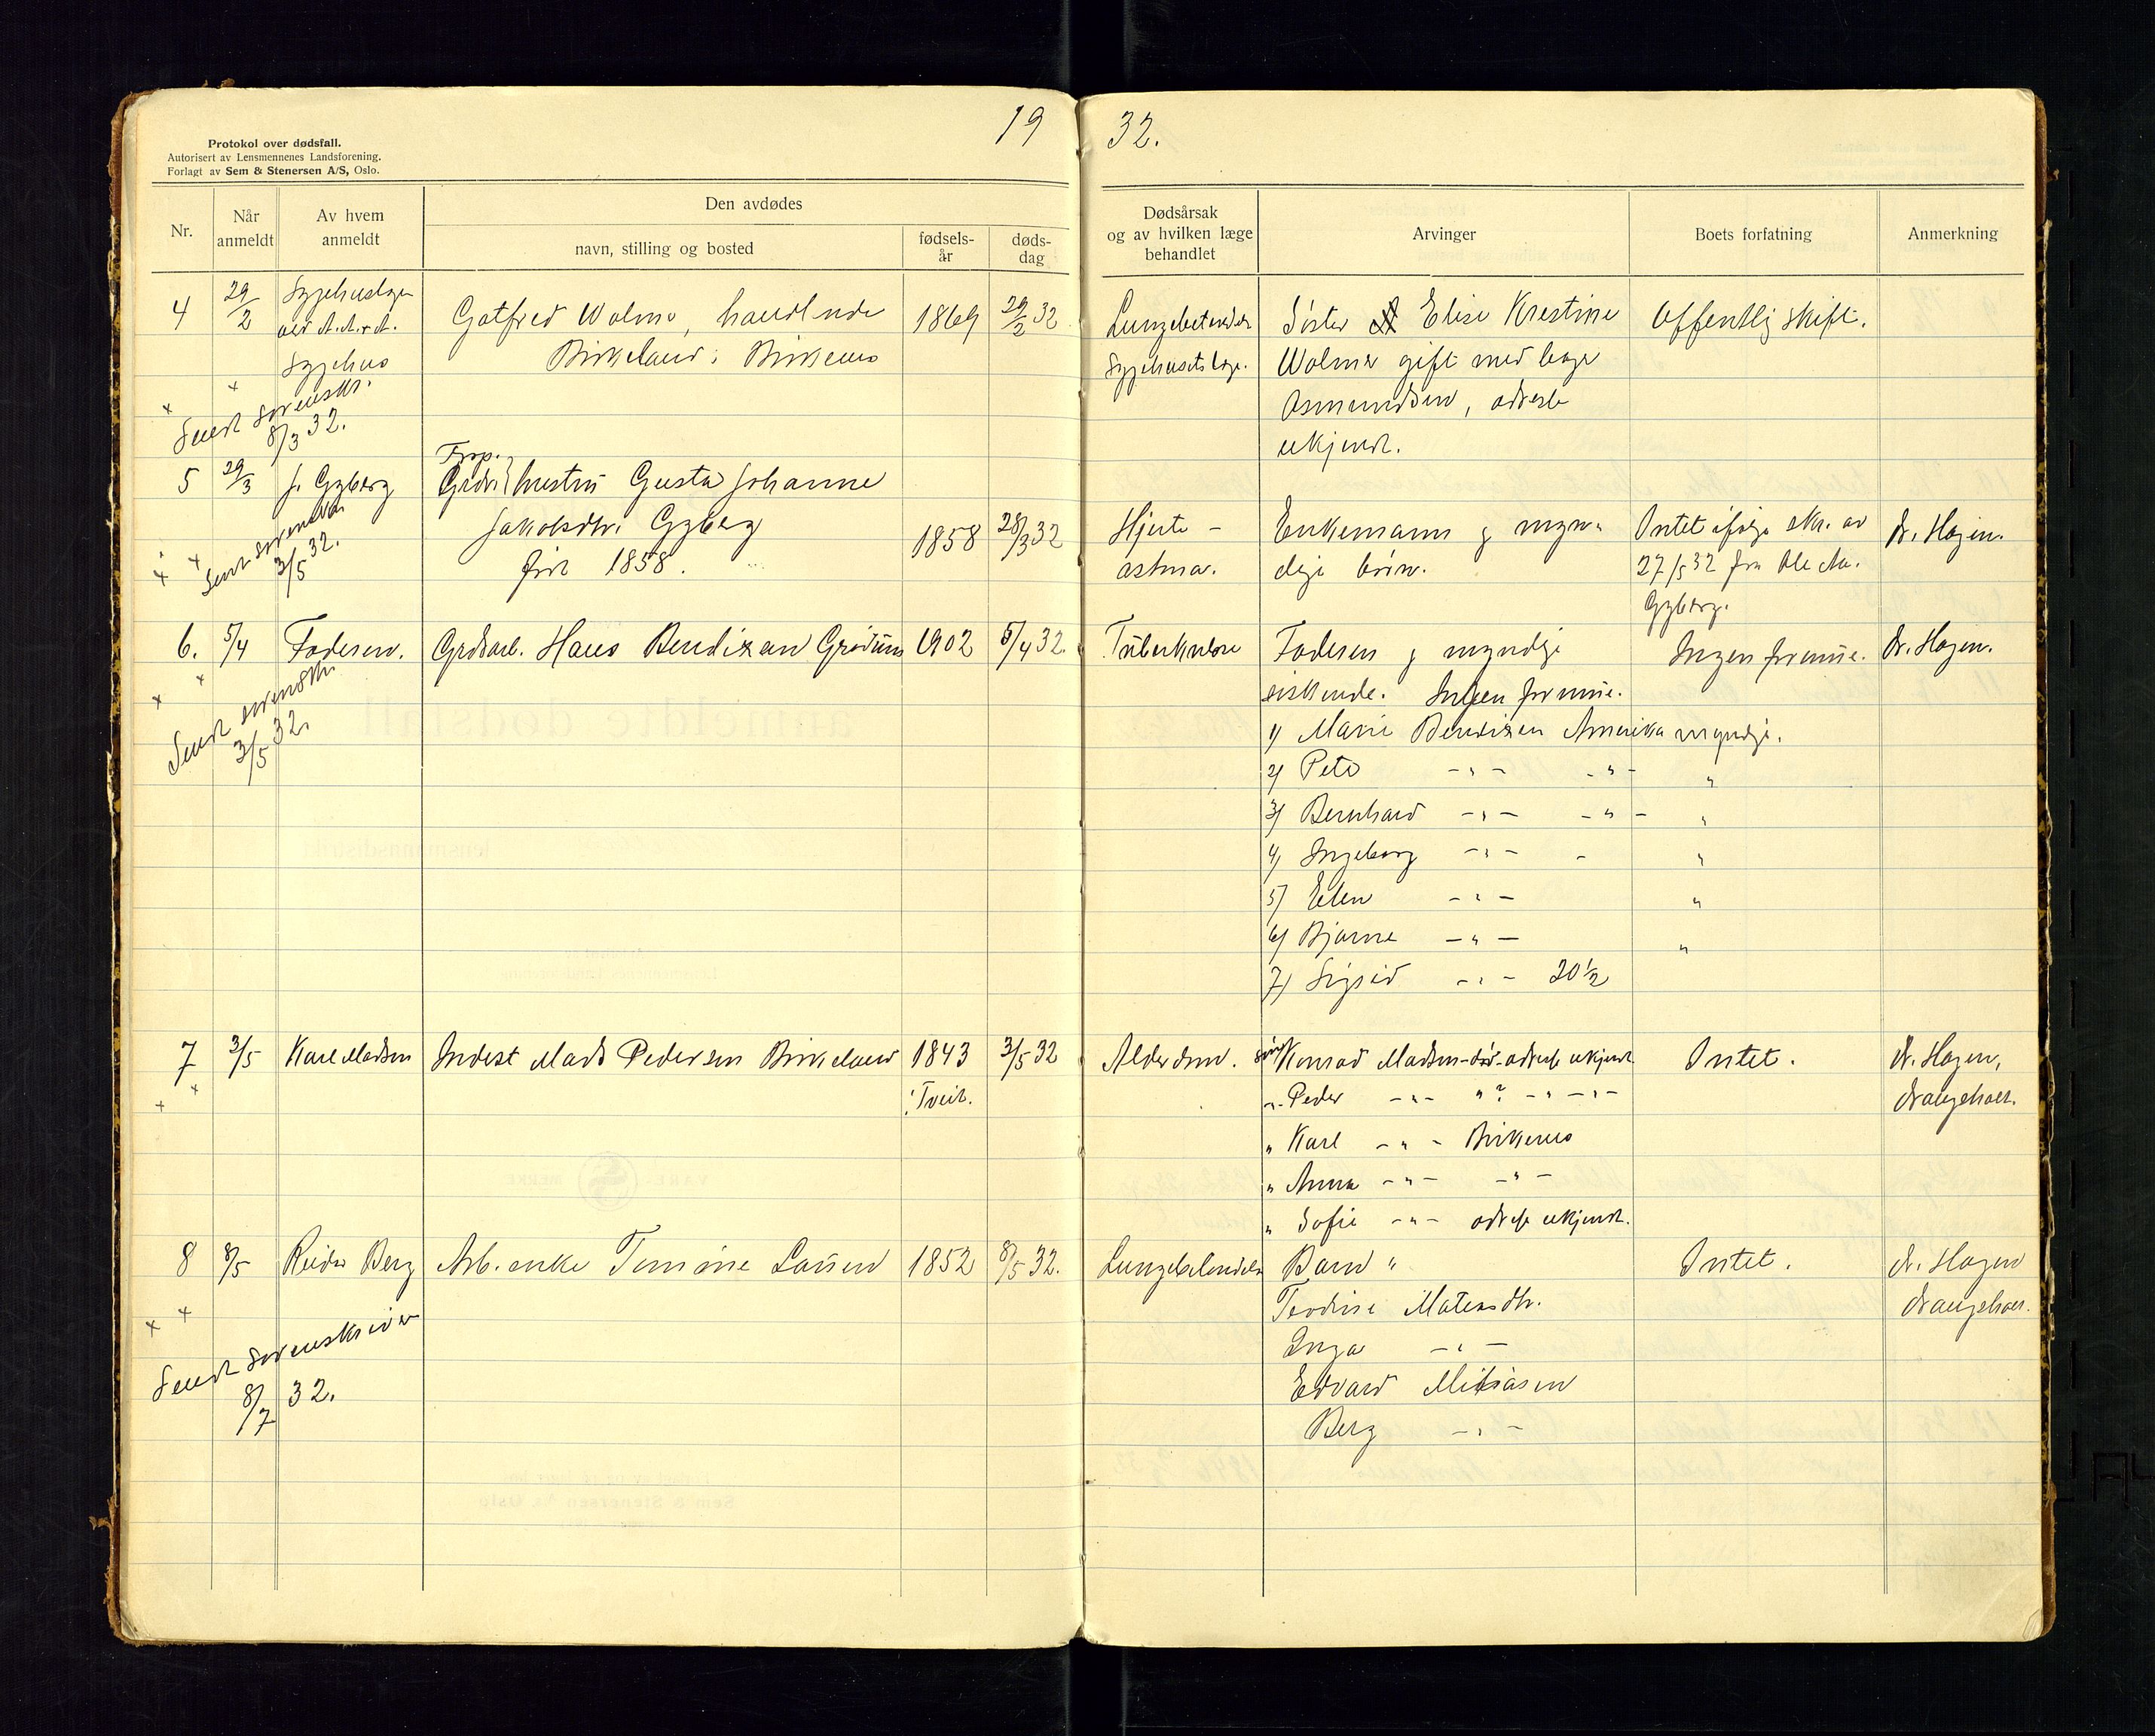 19 32.
Protokol over dødsfall.
Autorisert av Lensmennenes Landsforening.
Forlagt av Sem & Stenersen A/S, Oslo.
Nr.
Når anmeldt
Av hvem anmeldt
Den avdødes
navn, stilling og bosted
fødsels-år
døds-dag
Dødsårsak og av hvilken læge behandlet
Arvinger
Boets forfatning
Anmerkning
4 29/2 Sygehuslægen Gotfred Wolmer, handlende 1869 29/2 32 Lungebetendelse Søster Elise Kristine Offentlig skifte.
ved A.A.+A. Birkeland i Birkenes Sygehusets læge. Wolmer gift med læge
Sygehus Osmundsen, adresse
Sendt Sorenskr. ukjendt.
8/3 32.
Fhv.
5 29/3 J. Gyberg Grdbr. hustru Gusta Johanne
Jakobsdtr. Gyberg 1858 28/3 32 Hjerte- Enkemann og myn- Intet ifølge skr. av dr. Hagen.
Sendt sorenskr. 3/5 32. før 1858. astma. dige børn. 27/5 32 fra Ole Aa.
Gyberg.
6. 5/4 Faderen. Grdsarb. Hans Bendixen Grødum 1902 5/4 32. Tuberkulose Faderen og myndige Ingen formue. dr. Hagen.
Sendt sorenskr. 3/5 32. søskende. Ingen formue.
1) Marie Bendixen Amerika myndig.
2) Peter -"- -"- "
3) Bernhard -"- -"- "
4) Ingeborg -"- - "
5) Ellen -"- "
6) Bjarne -"- "
7) Sigrid -"- 20 1/2
7 3/5 Karl Madsen Inderst Mads Pedersen Birkeland 1843 3/5 32 Alderdom. Søn Konrad Madsen - død - adresse ukjendt Intet. dr. Hagen,
i Tveit. " Peder -"- "? -"- -"- Drangsholt.
" Karl -"- Birkenes
" Anna -"- -"-
" Sofie -"- adresse ukjendt.
8 8/5 Reidar Berg Arb. enke Tomine Larsen 1852 8/5 32. Lungebetendelse Barn " Intet. dr. Hagen
Teodine Matiasdtr. Drangsholt.
Inga -"-
Sendt Sorenskriver Edvard Matiasen
8/7 32. Berg -"-